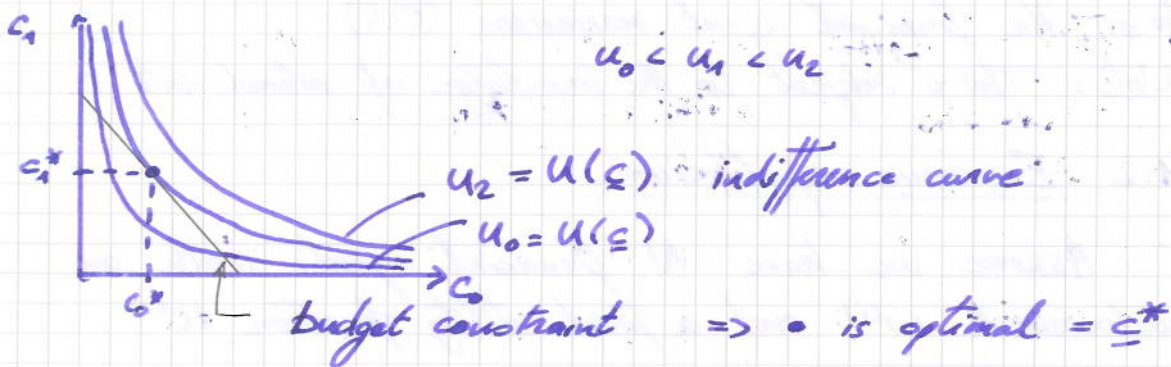 c₁
u₀ < u₁ < u₂
c₁*
u₂ = U(c̲) indifference curve
u₀ = U(c̲)
c₀* c₀
budget constraint => • is optimal = c̲*